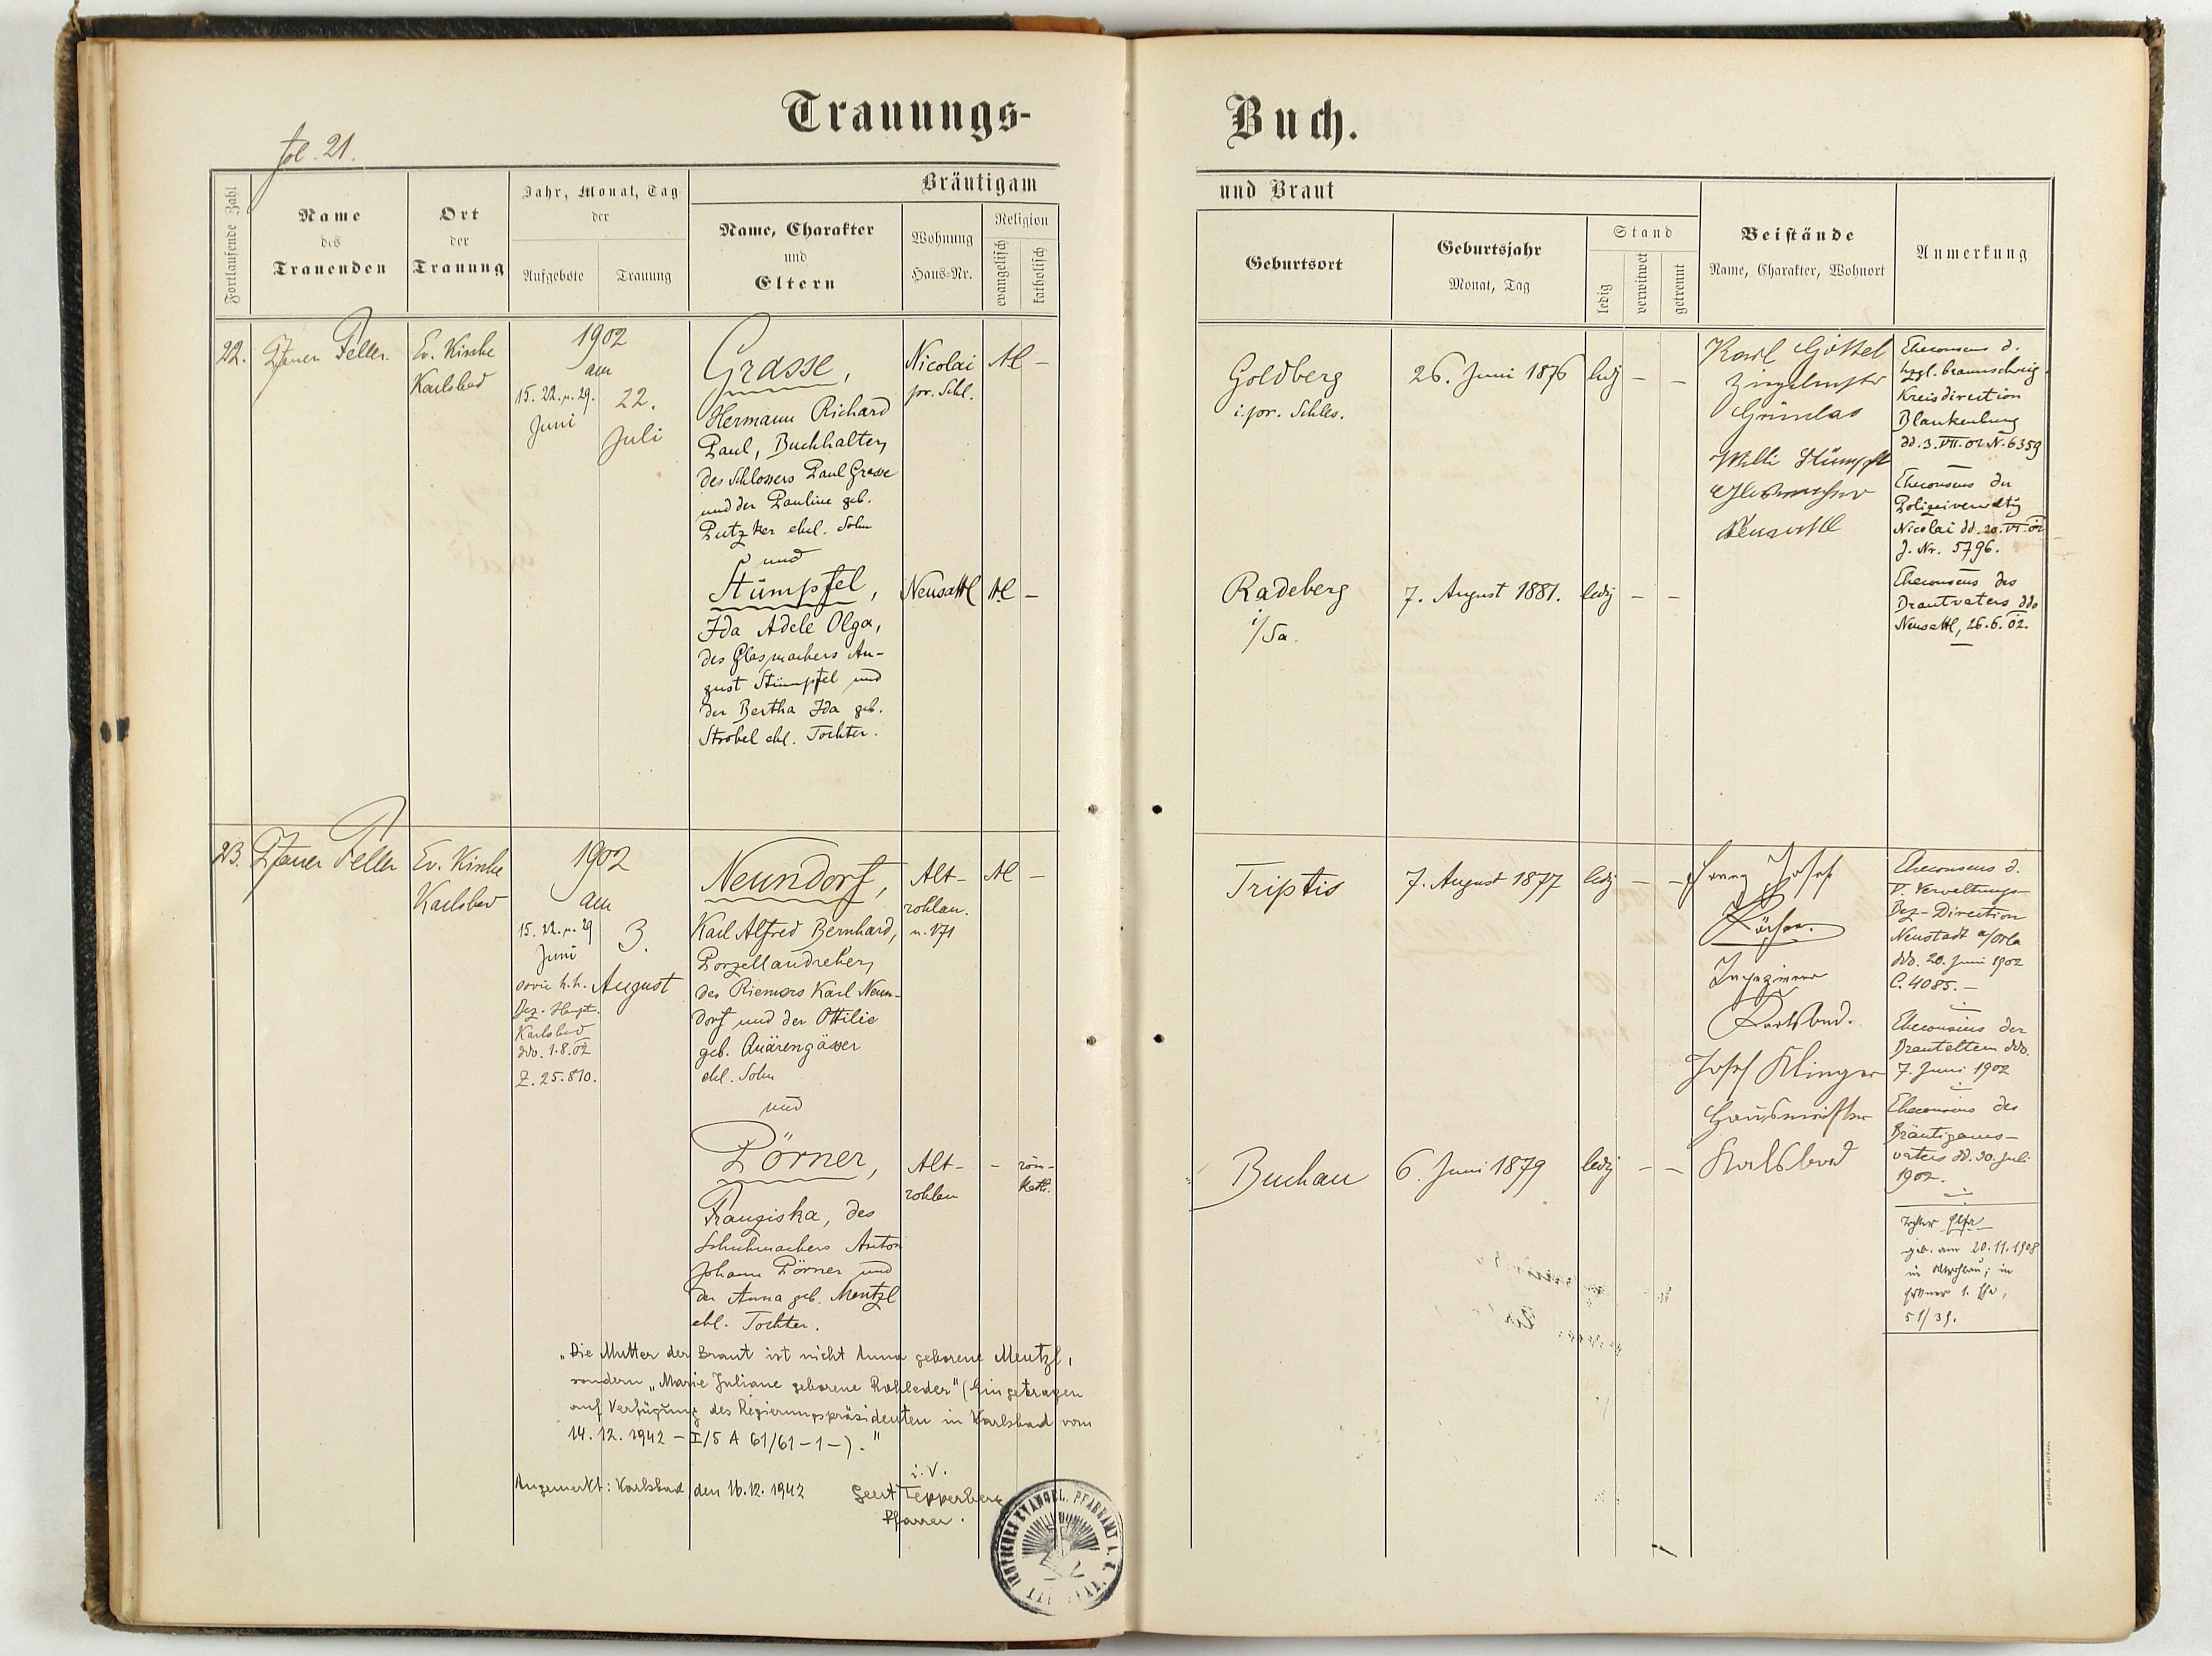 Trauungs-
Buch.
fol. 21.
Fortlaufende Zahl
Name
des
Trauenden
Ort
der
Trauung
Jahr, Monat, Tag
der
Aufgebote
Trauung
Bräutigam
Name, Charakter
und
Eltern
Wohnung
Haus-Nr.
Religion
evangelisch
katholisch
und Braut
Geburtsort
Geburtsjahr
Monat, Tag
Stand
ledig
verwitwet
getrennt
Beistände
Name, Charakter, Wohnort
Anmerkung
22.
Pfarrer Feller.
Ev. Kirche
Karlsbad
1902
am
15. 22. u. 29.
Juni
22.
Juli
Grasse,
Hermann Richard
Paul, Buchhalter,
des Schlossers Paul Grasse
und der Pauline geb.
Putzker ehel. Sohn
und
Stümpfel,
Ida Adele Olga,
des Glasmachers Au-
gust Stümpfel und
der Bertha Ida geb.
Strobel ehl. Tochter.
Nicolai
pr. Schl.
AC –
Neusattl
AC –
Goldberg
i. pr. Schles.
26. Juni 1876
ledg – –
Radeberg
i/Sa.
7. August 1881.
ledig – –
Karl Göttel
Grünlas
Willi Stümpfel
Glasmacher
Neusattl
Eheconsens d.
hzgl. braunschweig.
Kreisdirection
Blankenburg
dd. 3. VII. 02 N. 6359
Eheconsens der
Polizeiverwaltg
Nicolai dd. 20. VI. 02
J. Nr. 5796.
Eheconsens des
Brautvaters ddo
Neusattl, 26.6.02.
23.
Pfarrer Feller
Ev. Kirche
Karlsbad
1902
am
15. 22. u. 29
Juni
sowie k.k.
Bez. Haupt.
Karlsbad
ddo. 1.8.02
Z. 25.810.
3.
August
Neundorf,
Karl Alfred Bernhard,
Porzellandreher,
des Riemers Karl Neun-
dorf und der Ottilie
geb. Quärengässer
ehl. Sohn
und
Pörner,
Franziska, des
Schuhmachers Anton
Johann Pörner und
der Anna geb. Mentzl
ehl. Tochter.
Alt-
rohlau.
n. 171
AC –
Alt-
rohlau
– röm-
kath.
Triptis
7. August 1877
ledg – –
Buchau
6. Juni 1879
ledig – –
Franz Josef
Ingenieur
Karlsbad.
Josef Klinger
Hausmeister
Karlsbad
Eheconsens d.
V. Verwaltungs-
Bez-Direction
Neustadt a/Orla
ddo. 20. Juni 1902
C. 4085.–
Eheconsens der
Brauteltern ddo.
7. Juni 1902
Eheconsens des
Bräutigams-
vaters dd. 30. Juli
1902.
Tochter
geb. am 20.11.1908
in Altrohlau; in
51/39.
„Die Mutter der Braut ist nicht Anna geborene Mentzl,
sondern „Marie Juliane geborene Rohleder" (Eingetragen
auf Verfügung des Regierungspräsidenten in Karlsbad vom
14. 12. 1942 – I/5 A 61/61–1–)."
Angemerkt: Karlsbad, den 16.12.1942
i. V.
Gert Tepperberg
Pfarrer.
EVANGEL. PFARRAMT A. B.